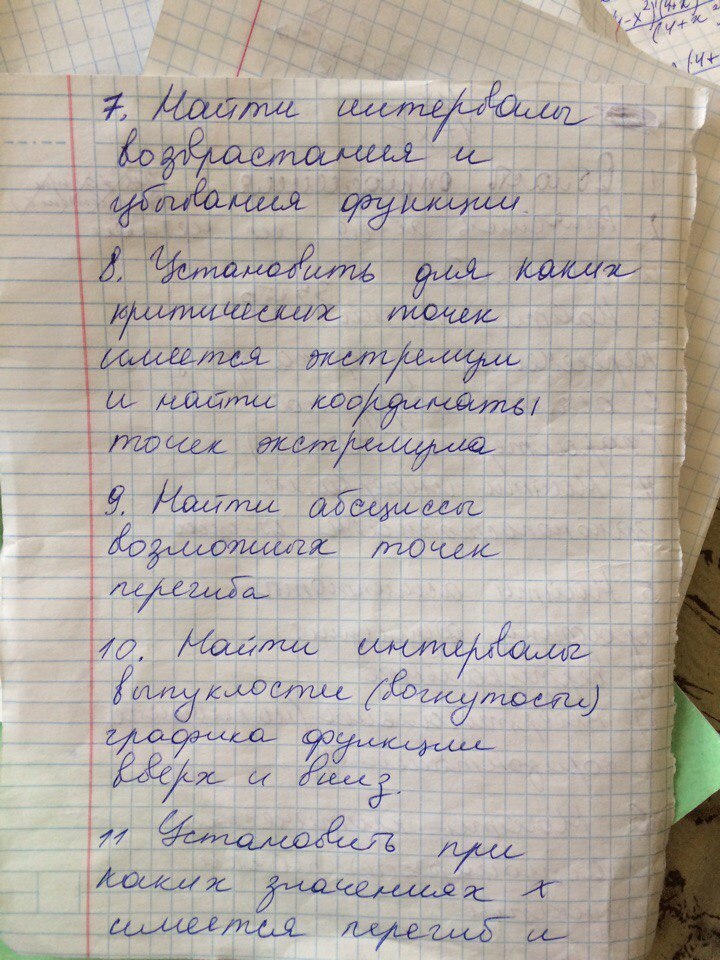 7. Найти интервалы
возврастания и
убывания функции.
8. Установить для каких
критических точек
имеется экстремум
и найти координаты
точек экстремума
9. Найти абсциссы
возможных точек
перегиба
10. Найти интервалы
выпуклости (вогнутости)
графика функции
вверх и вниз.
11 Установить при
каких значениях x
имеется перегиб и